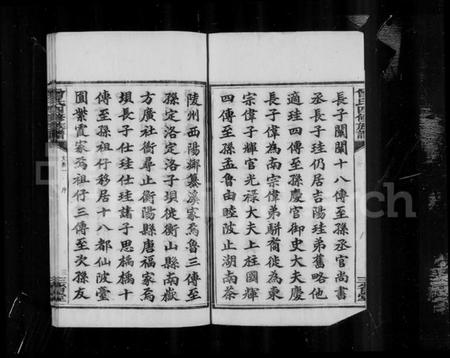 長子閬閬十八傳至孫丞官尚書
丞長子珪仍居吉陽珪弟舊略他
適珪四傳至孫慶官御史大夫慶
長子偉為南宗偉弟駢裔徙為東
宗偉子輝官光祿大夫上柱國輝
四傳至孫孟魯由睦陂止湖南茶
陵州西陽鄉綦溪家焉魯三傳至
孫定洛定洛子垻徙衡山縣南嶽
方廣社衡尋止衡陽縣唐福家焉
垻長子仕珪仕珪諸子思楀楀十
傳至孫祖行移居十八都仙陂臺
圓紫霞家焉祖行三傳至次孫友
曾氏四修族譜